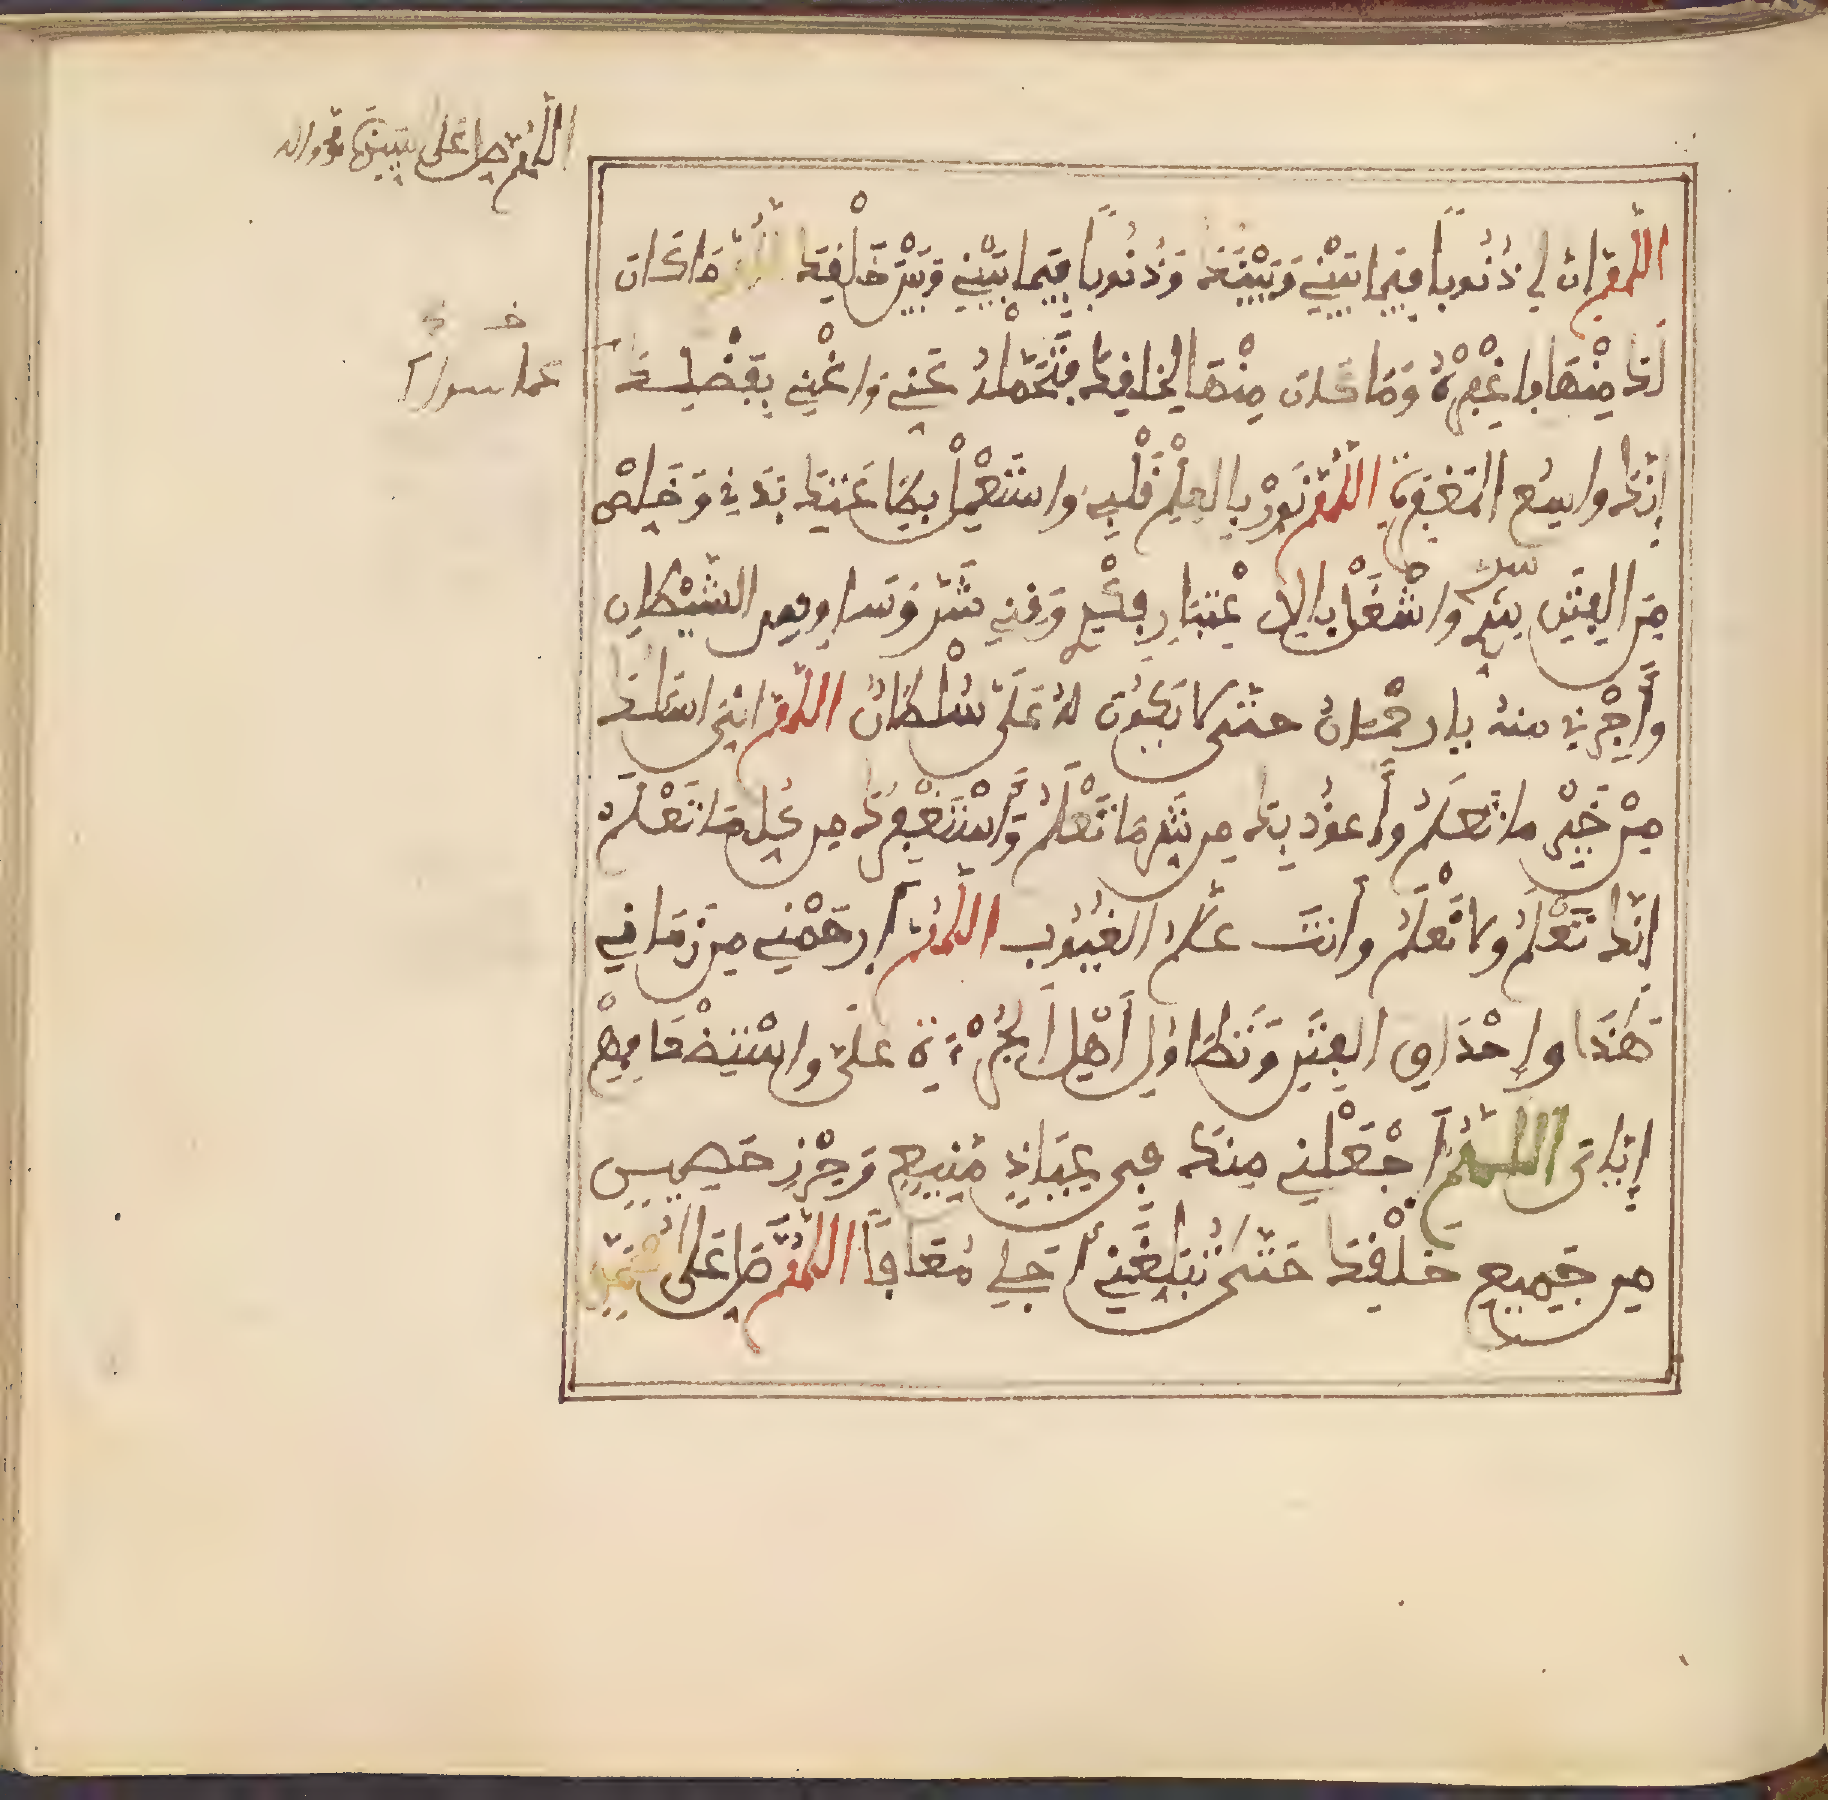 اللهم صل على سيدنا محمد وءاله
اللَّهُمَّ إن لي ذُنُوباً فِيمَا بَيْنِي وَبَيْنَكَ وَذُنُوباً فِيمَا بَيْنِي وَبَيْنَ خَلْقِكَ اللَّهُمَّ مَا كَانَ
لَكَ مِنْهَا فَاغْفِرْهُ وَمَا كَانَ مِنْهَا لِخَلْقِكَ فَتَحَمَّلْهُ عَنِّي وَاغْنِنِي بِفَضْلِكَ
عما سواك
إِنَّكَ وَاسِعُ الْمَغْفِرَةِ اللَّهُمَّ نَوِّرْ بِالْعِلْمِ قَلْبِي وَاسْتَعْمِلْ بِطَاعَتِكَ بَدَنِي وَخَلِّصْ
سري
مِنَ الْفِتَنِ سِرِّي وَاشْغَلْ بِالِاعْتِبَارِ فِكْرِي وَقِنِي شَرَّ وَسَاوِسِ الشَّيْطَانِ
وَأَجِرْنِي منهُ يا رحْمَانُ حتَّى لَا يَكُونَ لَهُ عَلَيَّ سُلْطَانٌ اللَّهُمَّ إنِّي أسْأَلُكَ
مِنْ خَيْرِ ما تَعْلَمُ وَأَعوذُ بِكَ مِن شَرِّ مَا تَعْلَمُ وَأَسْتَغْفِرُكَ مِن كُلِّ مَا تَعْلَمُ
إنَّكَ تَعْلَمُ ولا نَعْلَمُ وأنتَ عَلَّامُ الْغُيُوبِ اللَّهُمَّ ارْحَمْنِي مِن زَمَانِي
هَذَا وإِحْدَاقِ الْفِتَنِ وَتَطَاوُلِ أَهْلِ الْجُرْأَةِ عَلَيَّ وَاسْتِضْعَافِهِمْ
إيَّايَ اللَّهُمَّ اجْعَلْنِي مِنْكَ فِي عِيَاذٍ مَنِيعٍ وَحِرْزٍ حَصِينٍ
مِن جَمِيعِ خَلْقِكَ حَتَّى تُبَلِّغَنِي أَجَلِي مُعَافاً اللَّهُمَّ صَلِّ عَلَى مُحَمَّدٍ